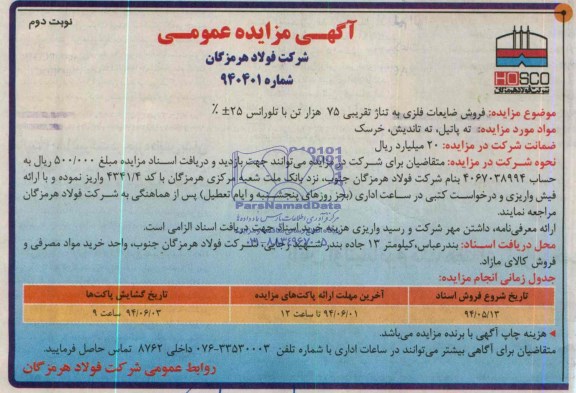 نوبت دوم
آگهـی مزایده عمومـی
شرکت فولاد هرمزگان
شماره ۹۴۰۴۰۱
HOSCO
شرکت فولاد هرمزگان
موضوع مزایده: فروش ضایعات فلزی به تناژ تقریبی ۷۵ هزار تن با تلورانس ۲۵± ٪
مواد مورد مزایده: ته پاتیل، ته تاندیش، خرسک
ضمانت شرکت در مزایده: ۲۰ میلیارد ریال
نحوه شرکت در مزایده: متقاضیان برای شرکت در مزایده می‌توانند جهت بازدید و دریافت اسناد مزایده مبلغ ۵۰۰/۰۰۰ ریال به
حساب ۴۰۶۷۰۳۸۹۹۴ بنام شرکت فولاد هرمزگان جنوب، نزد بانک ملت شعبه مرکزی هرمزگان با کد ۴۳۴۱/۴ واریز نموده و با ارائه
فیش واریزی و درخواست کتبی در ساعت اداری (بجز روزهای پنجشنبه و ایام تعطیل) پس از هماهنگی به شرکت فولاد هرمزگان
مراجعه نمایند.
ارائه معرفی‌نامه، داشتن مهر شرکت و رسید واریزی هزینه خرید اسناد جهت دریافت اسناد الزامی است.
محل دریافت اسناد: بندرعباس،کیلومتر ۱۳ جاده بندر شهید رجایی، شرکت فولاد هرمزگان جنوب، واحد خرید مواد مصرفی و
فروش کالای مازاد.
جدول زمانی انجام مزایده:
تاریخ شروع فروش اسناد آخرین مهلت ارائه پاکت‌های مزایده تاریخ گشایش پاکت‌ها
۹۴/۰۵/۱۳ ۹۴/۰۶/۰۱ تا ساعت ۱۲ ۹۴/۰۶/۰۳ ساعت ۹
هزینه چاپ آگهی با برنده مزایده می‌باشد.
متقاضیان برای آگاهی بیشتر می‌توانند در ساعات اداری با شماره تلفن ۳۳۵۳۰۰۰۳-۰۷۶ داخلی ۸۷۶۲ تماس حاصل فرمایید.
روابط عمومی شرکت فولاد هرمزگان
ParsNamadData